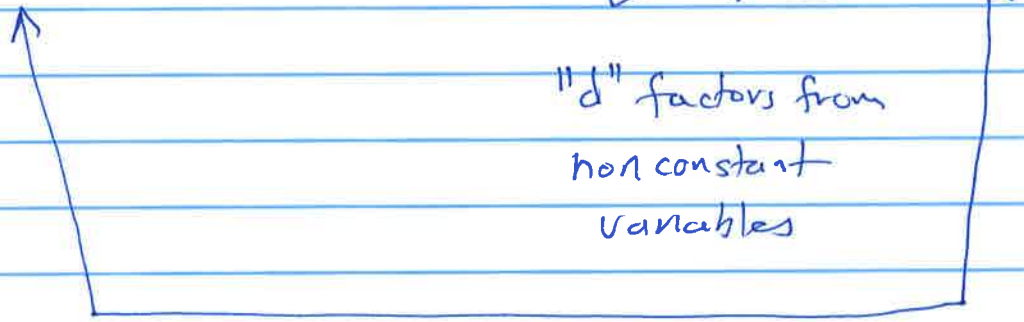 "d" factors from
non constant
variables